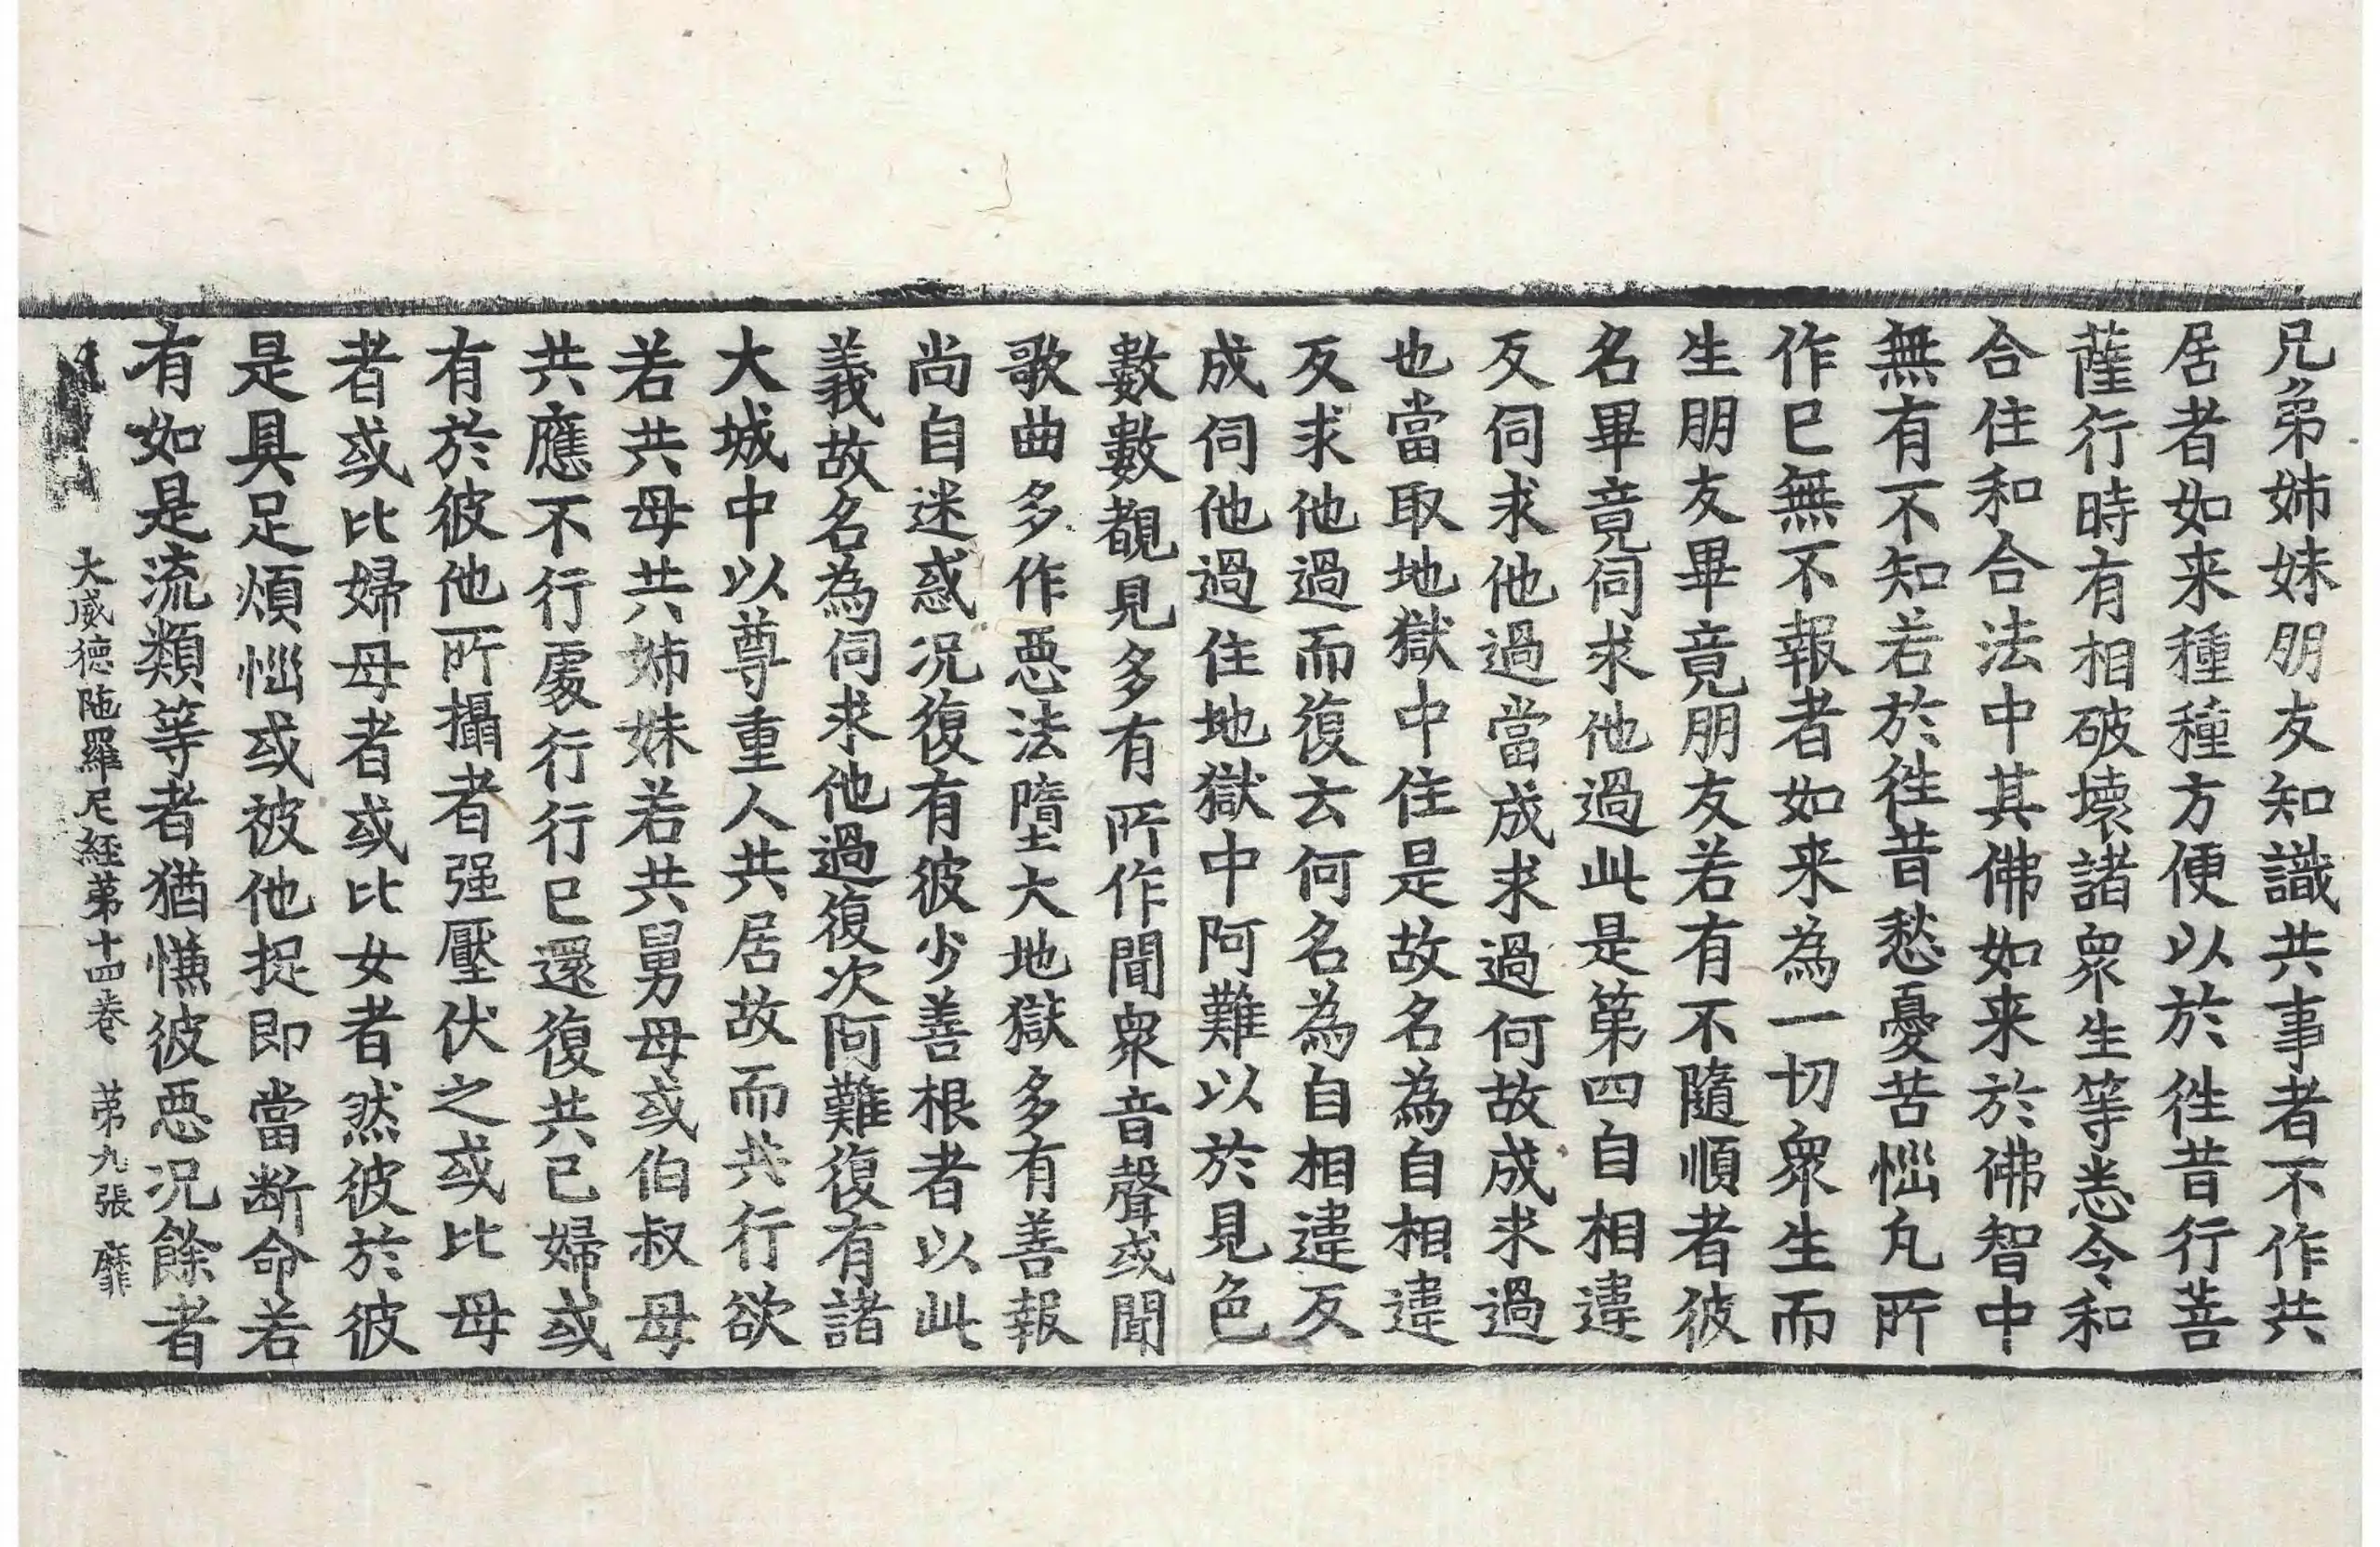 兄弟姊妹朋友知識共事者不作共
居者如来種種方便以於徃昔行菩
薩行時有相破壞諸衆生等悉令和
合住和合法中其佛如来於佛智中
無有不知若於徃昔愁憂苦惱凡所
作已無不報者如来為一切衆生而
生朋友畢竟朋友若有不隨順者彼
名畢竟伺求他過此是第四自相違
反伺求他過當成求過何故成求過
也當取地獄中住是故名為自相違
反求他過而復去何名為自相違反
成伺他過住地獄中阿難以於見色
數數覩見多有所作聞衆音聲或聞
歌曲多作惡法墮大地獄多有善報
尚自迷惑况復有彼少善根者以此
義故名為伺求他過復次阿難復有諸
大城中以尊重人共居故而共行欲
若共母共姊妹若共舅母或伯叔母
共應不行處行行已還復共己婦或
有於彼他所攝者强壓伏之或比母
者或比婦母者或比女者然彼於彼
是具足煩惱或被他捉即當断命若
有如是流類等者猶慊彼惡况餘者
大威德陁羅尼経苐十四卷 苐九張 靡